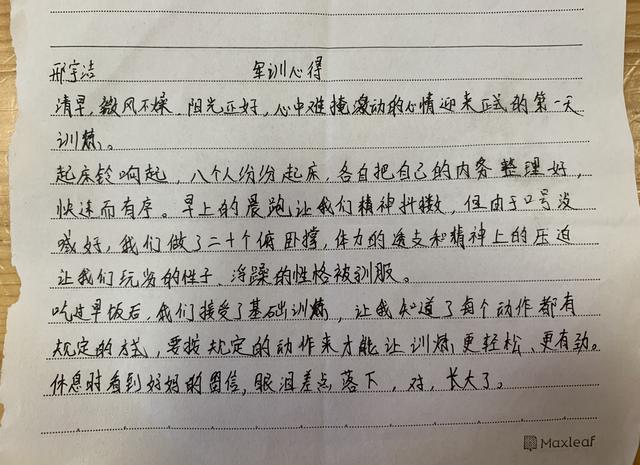 邢宇洁 军训心得
清早，微风不燥，阳光正好，心中难掩激动的心情迎来正式的第一天
训练。
起床铃响起，八个人纷纷起床，各自把自己的内务整理好，
快速而有序。早上的晨跑让我们精神抖擞，但由于口号没
喊好，我们做了二十个俯卧撑，体力的透支和精神上的压迫
让我们玩劣的性子、浮躁的性格被驯服。
吃过早饭后，我们接受了基础训练，让我知道了每个动作都有
规定的方式，要按规定的动作来才能让训练更轻松、更有劲。
休息时看到好妈的回信，眼泪差点落下，对，长大了。
Maxleaf